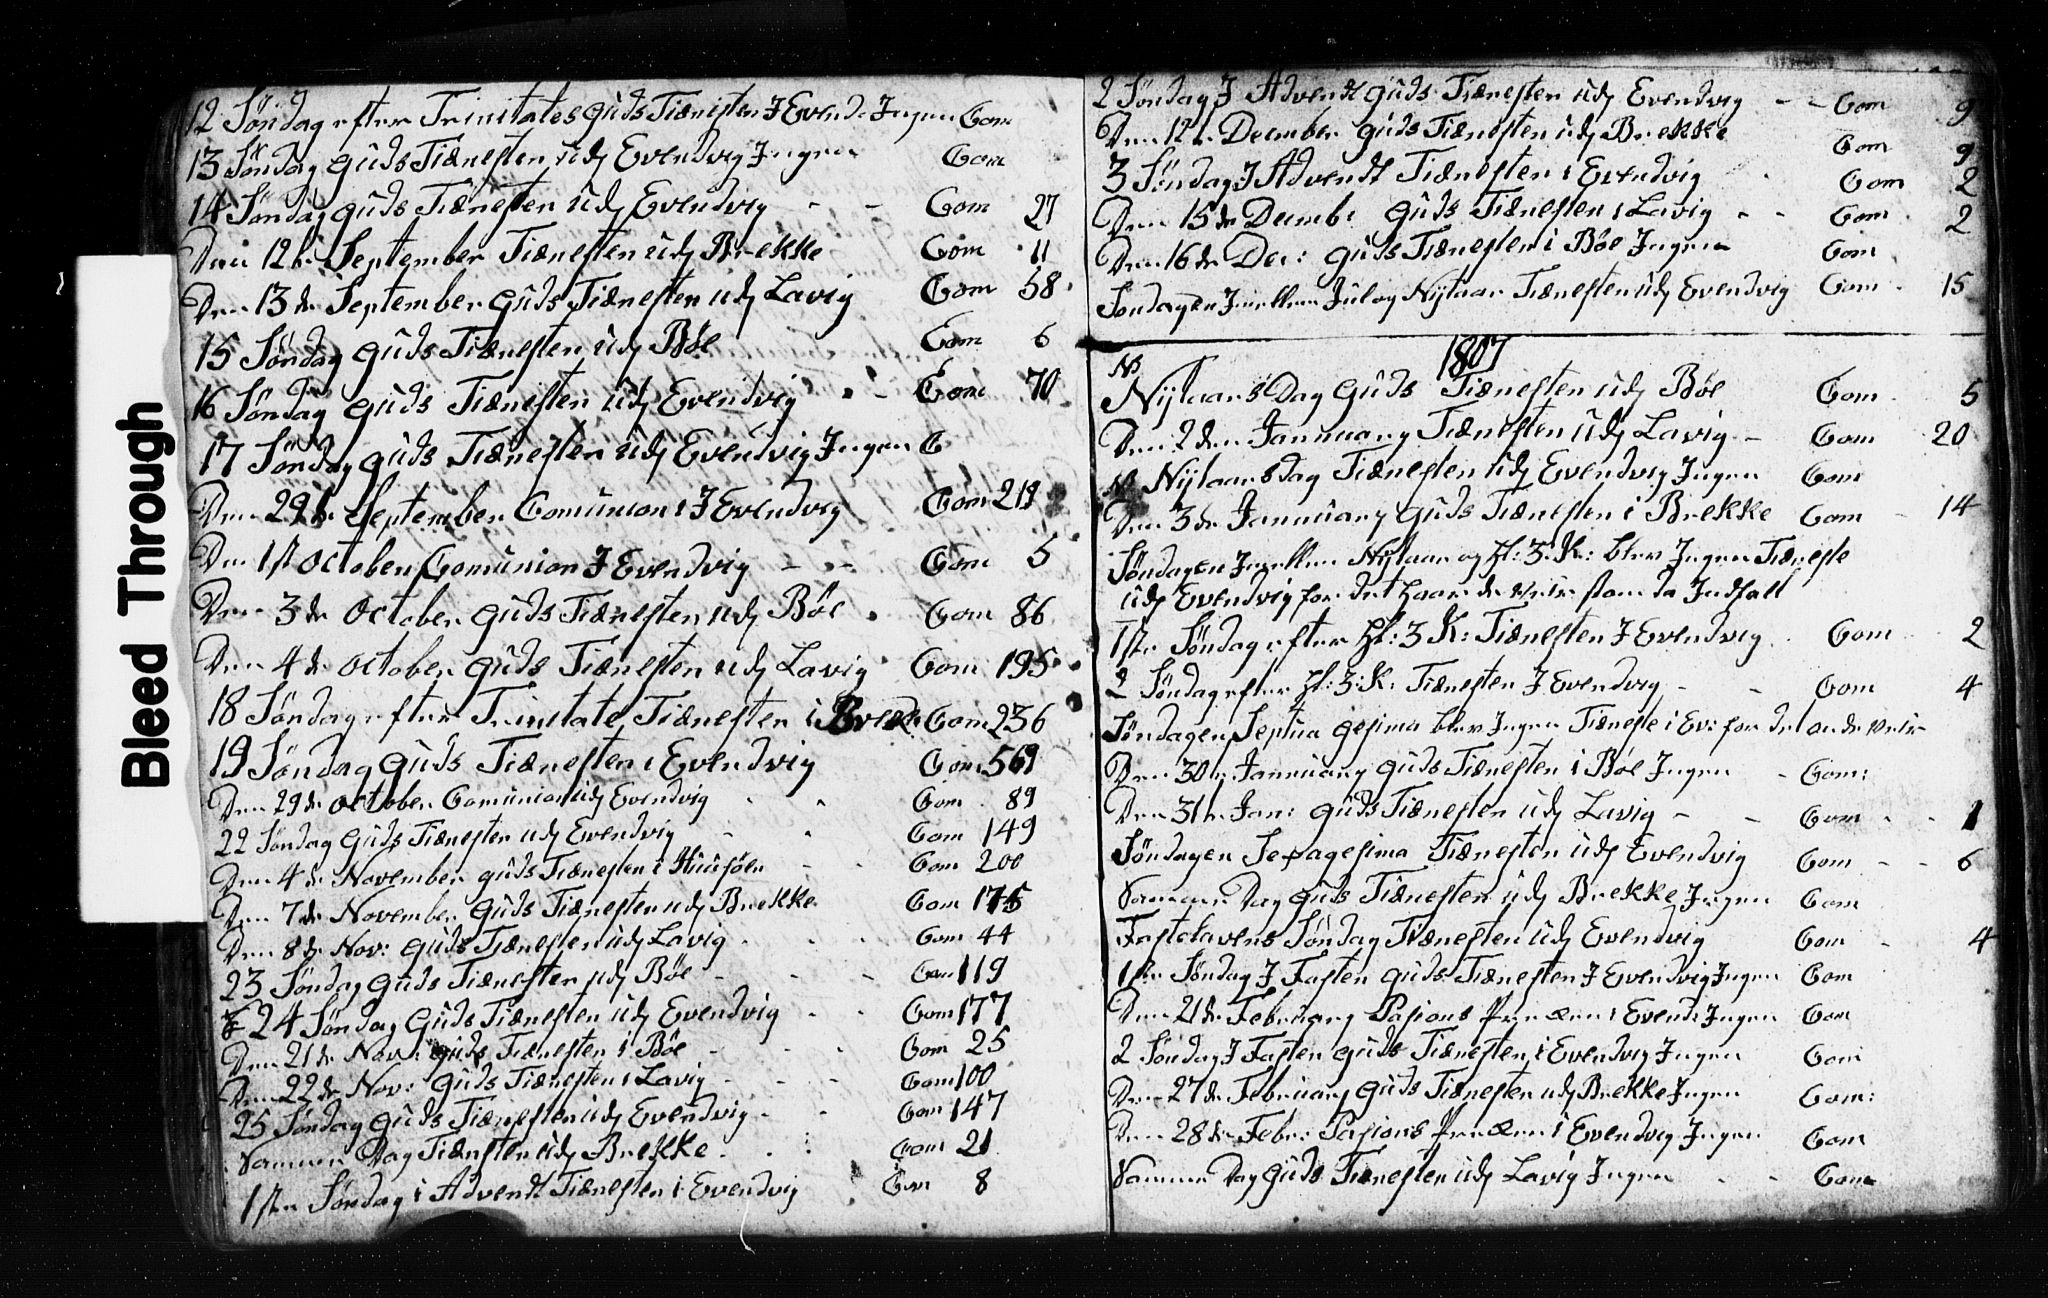 12 Søndag efter Trinitates Guds Tiænesten J Evend: Jngen Com
13 Søndag Guds Tiænesten udj Evendvig Jngen Com
14 Søndag Guds Tiænesten udj Evendvig - - Com 27
Den 12te September Tiænesten udj Brekke Com 11
Den 13de September Guds Tiænesten udj Lavig Com 58
15 Søndag Guds Tiænesten udj Bøe Com 6
16 Søndag Guds Tiænesten udj Evendvig - Com 70
17 Søndag Guds Tiænesten udj Evendvig Jngen C
Den 29de September Comunion J Evendvig Com 218
Den 1st October Comunion J Evendvig - - Com 5
Den 3de October Guds Tiænesten udj Bøe Com 86
Den 4de October Guds Tiænesten udj Lavig Com 195
18 Søndag efter Trinitate Tiænesten i Brek Com 236
19 Søndag Guds Tiænesten i Evendvig Com 569
Den 29de October Comunion udj Evendvig Com 89
22 Søndag Guds Tiænesten udj Evendvig - Com 149
Den 4de November Guds Tiænesten i Huusøen - - Com 200
Den 7de November Guds Tiænesten udj Brekke Com 175
Den 8de Nov: Guds Tiænesten udj Lavig Com 44
23 Søndag Guds Tiænesten udj Bøe - - - Com 119
24 Søndag Guds Tiænesten udj Evendvig Com 177
Den 21de Nov: Guds Tiænesten i Bøe - - Com 25
Den 22de Nov: Guds Tiænesten i Lavig - - Com 100
25 Søndag Guds Tiænesten udj Evendvig - Com 147
Sammen Dag Tiænesten udj Brekke Com 21
1ste Søndag i Advendt Tiænesten i Evendvig Com 8
Bleed Through
2 Søndag J Advendt Guds Tiænesten udj Evendvig - - Com 9
Den 12te December Guds Tiænesten udj Brekke Com 9
3 Søndag J Advendt Tiænesten i Evendvig Com 2
Den 15de Decemb: Guds Tiænesten i Lavig - - Com 2
Den 16de Dec: Guds Tiænesten i Bøe Jngen Com
Søndagen Jmellem Jul og Nÿtaar Tiænesten udj Evendvig Com 15
1807
Nÿtaars Dag Guds Tiænesten udj Bøe Com 5
Den 2den Januuary Tiænesten udj Lavig - Com 20
Nÿtaarsdag Tiænesten udj Evendvig Jngen Com
Den 3de Januuary Guds Tiænesten i Brekke Com - 14
Søndagen Jmellem Nÿtaar og Hl: 3: K: blev Jngen Tiæneste
udj Evendvig for det haarde Veir som da Jndfalt
1ste Søndag efter Hl: 3 K: Tiænesten J Evendvig Com 2
2 Søndag efter Hl: 3: K: Tiænesten J Evendvig - - Com 4
Søndagen Septua gesima blev Jngen Tiæneste i Ev: for det onde Veir
Den 30te Januuary Guds Tiænesten i Bøe Jngen - Com:
Den 31te Jan: Guds Tiænesten udj Lavig - - Com - - 1
Søndagen Sexagesima Tiænesten udj Evendvig Com - - 6
Sammen Dag Guds Tiænesten udj Brekke Jngen Com
Fastelavens Søndag Tiænesten udj Evendvig Com - 4
1ste Søndag J Fasten Guds Tiænesten J Evendvig Jngen Com
Den 21de Februuary Pasions Præken i Evend: Jngen Com
2 Søndag J Fasten Guds Tiænesten i Evendvig Jngen Com
Den 27de Februuary Guds Tiænesten udj Brekke Jngen Com:
Den 28de Febr: Pasions Præken i Evendvig Jngen Com
Sammen Dag Guds Tiænesten udj Lavig Jngen - - Com